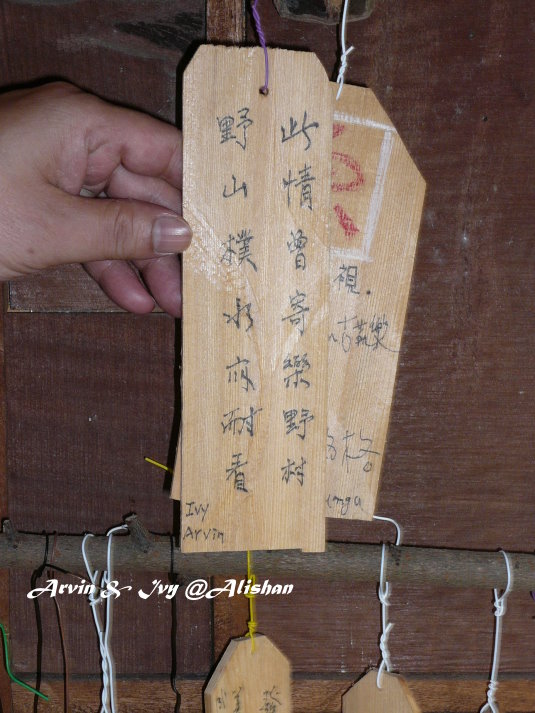 此情曾寄樂野村
野山樸水亦耐看
Ivy
Arvin
視.
格。
Arvin & Ivy @Alishan